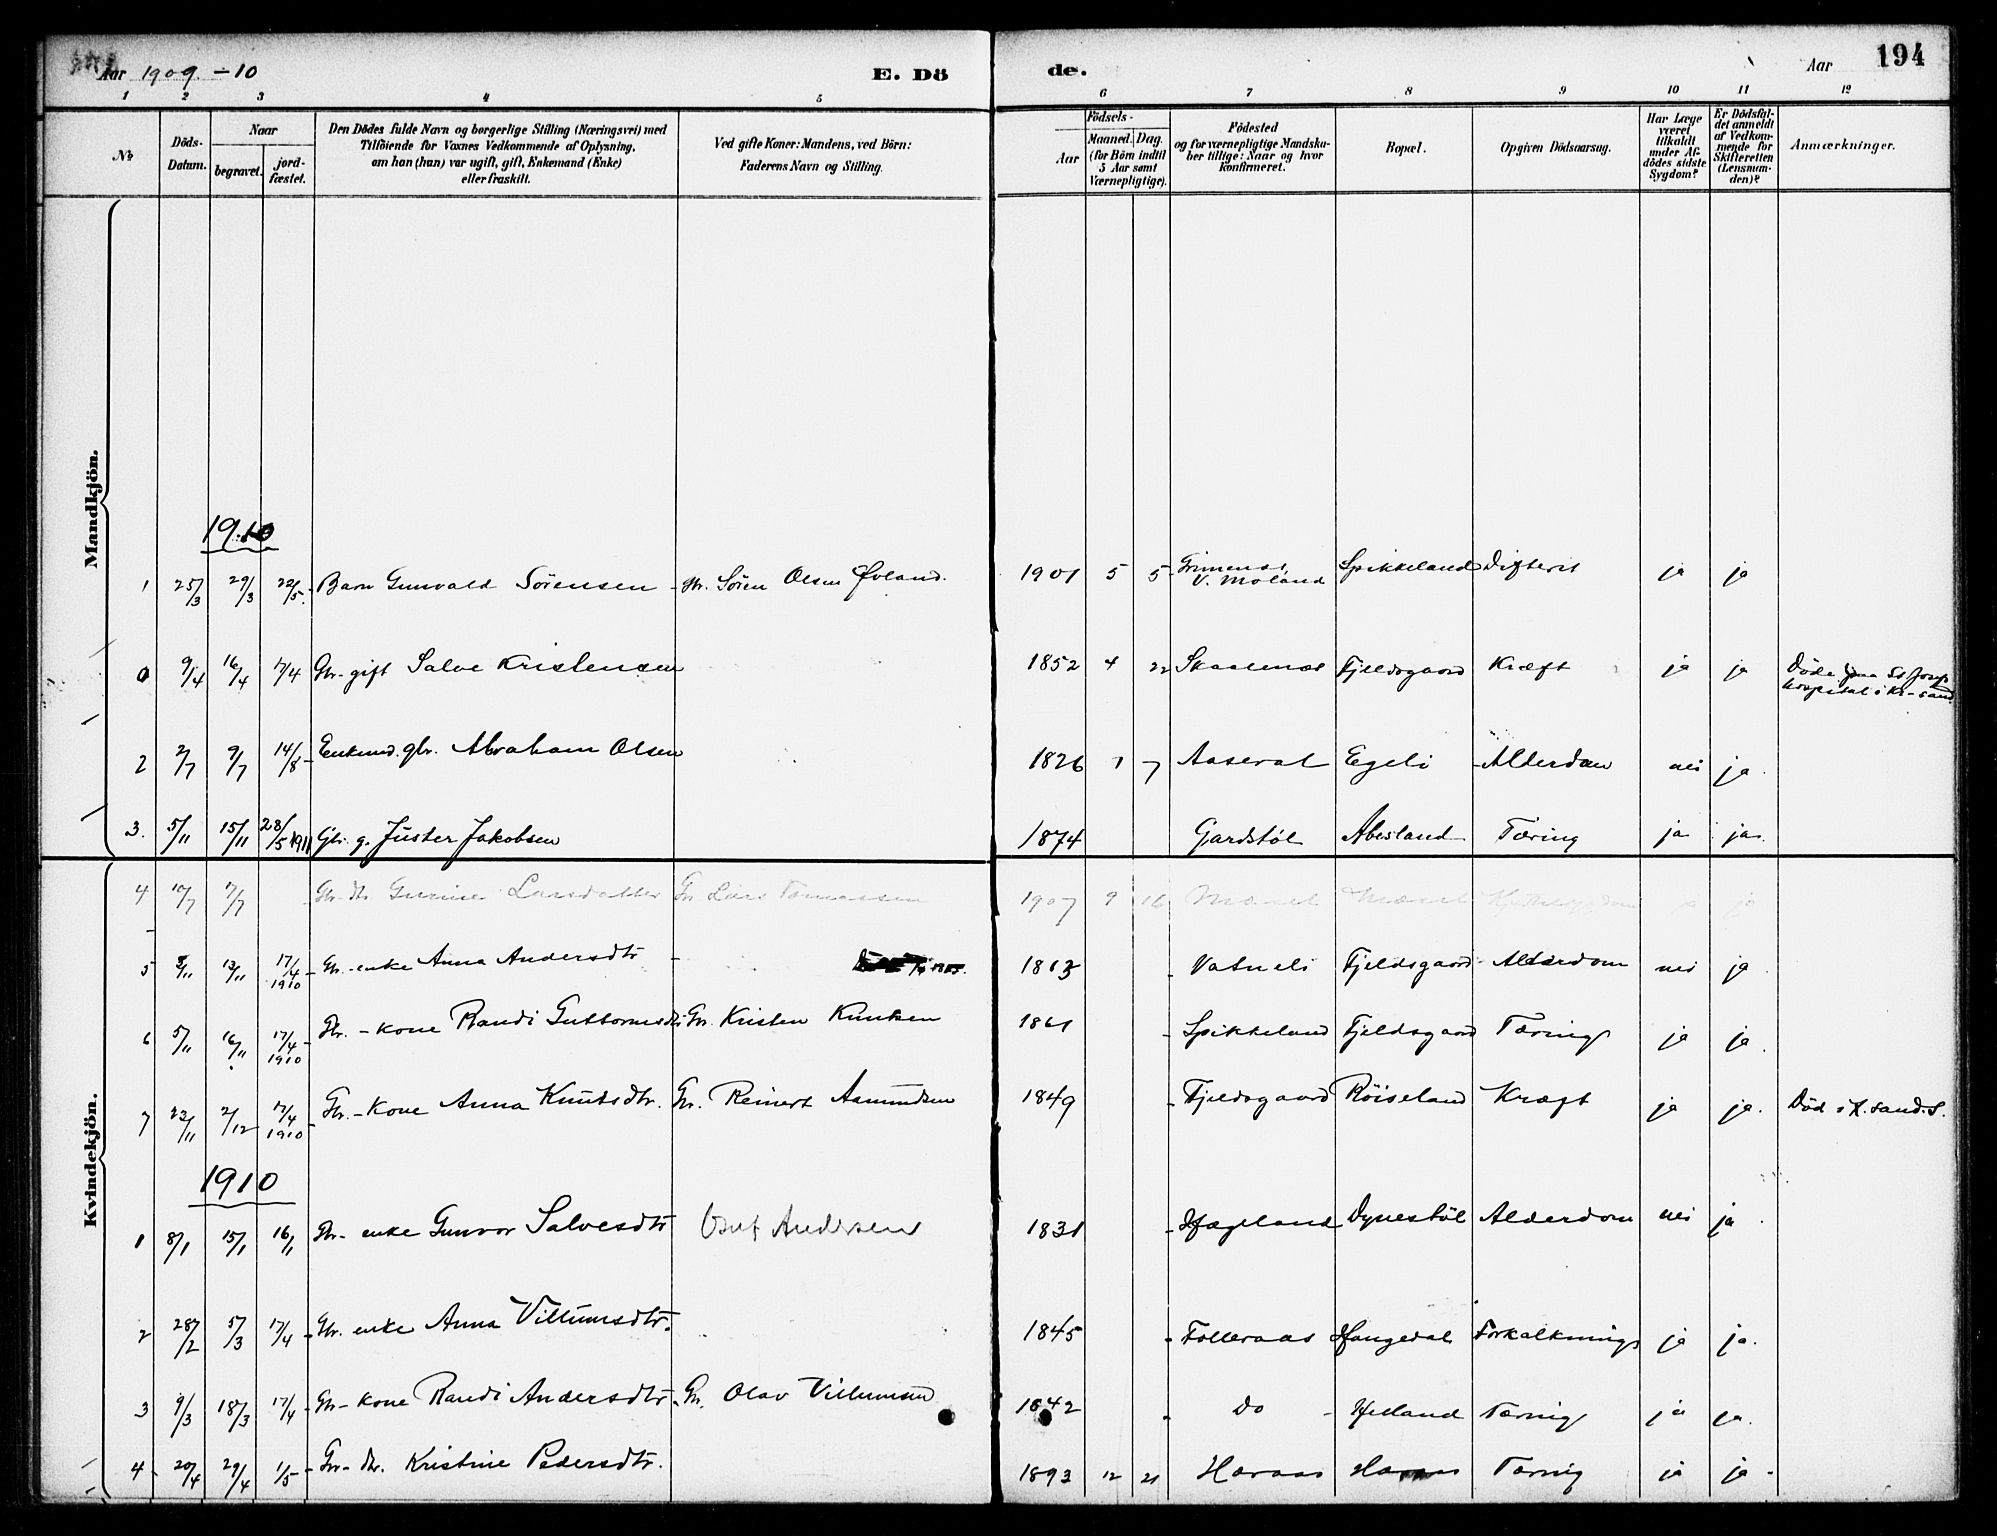 Aar 1909-10 E. Dö de. Aar 194
1 2 3 4 5 6 7 8 9 10 11 12
No
Döds-Datum.
Naar begravet. jord-fæstet.
Den Dödes fulde Navn og borgerlige Stilling (Næringsvei) med
Tilföiende for Voxnes Vedkommende af Oplysning,
om han (hun) var ugift, gift, Enkemand (Enke)
eller fraskilt.
Ved gifte Koner: Mandens, ved Börn:
Faderens Navn og Stilling.
Födsels-
Aar Maaned. Dag.
(for Börn indtil
5 Aar samt
Værnepligtige).
Födested
og for værnepligtige Mandska-
ber tillige: Naar og hvor
konfirmeret.
Bopæl.
Opgiven Dödsaarsag.
Har Læge
været
tilkaldt
under Af-
dödes sidste
Sygdom?
Er Dödsfal-
det anmeldt
af Vedkom-
mende for
Skifteretten
(Lensman-
den)?
Anmærkninger.
Mandkjön.
1910
1 25/3 29/3 22/5 Barn Gunvald Sörensen - Gbr. Sören Olsen Øvland. 1901 5 5 Grimenes, V. Moland Spikkeland Difterit ja ja
0 9/4 16/4 17/4 Gbr. gift Salve Kristensen 1852 4 22 Skaalenes Fjeldsgaard Kræft ja ja Døde paa St Josefs hospital i Kr-sand
2 2/7 9/7 14/8 Enkemd. gbr. Abraham Olsen 1826 1 7 Aaseral Egeli Alderdom nei ja
3. 5/11 15/11 28/5 1911 Gbr. g. Juster Jakobsen 1874 Gardstöl Abesland Tæring ja ja
Kvindekjön.
4 10/7 17/7 Gbr. dtr Gurine Larsdatter Gbr Lars Tomassen 1907 9 16 ja
5 5/11 13/11 17/4 1910 Gbr. enke Anna Andersdtr - 1813 Vatneli Fjeldsgaard Alderdom nei ja
6 5/11 16/11 17/4 1910 Gbr. - kone Randi Guttormsdtr Gbr. Kristen Knutsen 1861 Spikkeland Fjeldsgaard Tæring ja ja
7 23/11 2/12 17/4 1910 Gbr. - Kone Anna Knutsdtr. Gbr. Reinert Aamundsen 1849 Fjeldsgaard Röiseland Kræft ja ja. Død i K.sand.S.
1910
1 8/1 15/1 16/1 Gbr - enke Gunvor Salvesdtr Andersen 1831 Hægeland Dynestöl Alderdom nei ja
2 28/2 5/3 17/4 Gbr. enke Anna Villumsdtr. 1845 Folleraas Haugedal Forkalkning ja ja.
3 9/3 18/3 17/4 Gbr - kone Randi Andersdtr - Gbr. Olav Villumsen 1842 Do - Helland Tæring ja ja.
4 20/4 29/4 1/5 Gbr - dtr. Kristine Pedersdtr. 1893 12 21 Haraas Haraas Tæring ja ja